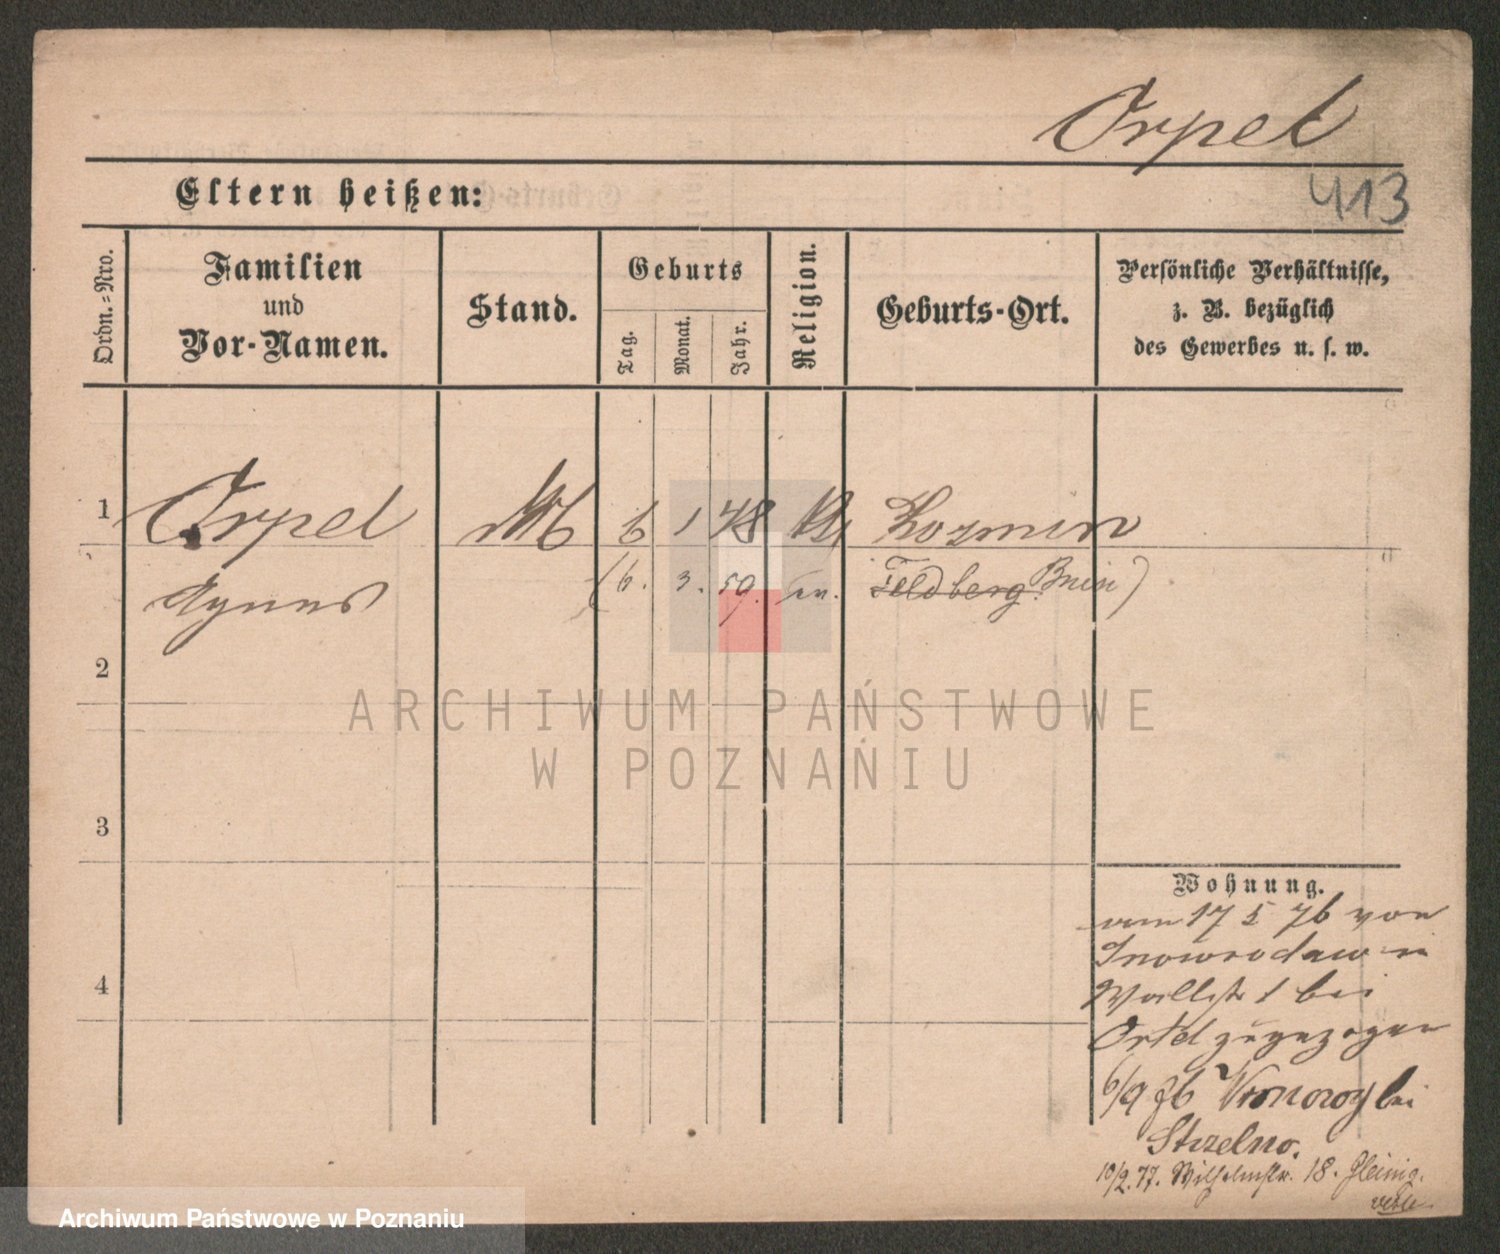 Orpel
Eltern heißen:
413
Ordn.=Nro.
Familien
und
Vor-Namen.
Stand.
Geburts
Tag.
Monat.
Jahr.
Religion.
Geburts-Ort.
Persönliche Verhältnisse,
z. B. bezüglich
des Gewerbes u. s. w.
1
Orpel
6 1 48
Kozmin
Agnes
(6. 3. 59. ev. Feldberg Bnin)
2
ARCHIWUM PAŃSTWOWE
W POZNANIU
3
Wohnung.
vom 17 5 76 von
Inowrodaw in
Wallstr 1 bei
Ortel zugezogen
4
6/9 76 Wronowy bei
Strzelno.
10/2. 77. Wilhelmstr. 18.
Archiwum Państwowe w Poznaniu